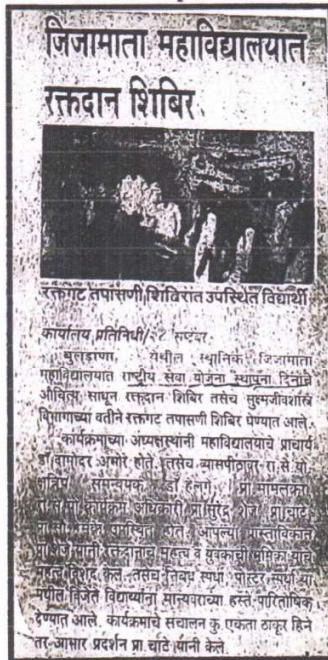 जिजामाता महाविद्यालयात
रक्तदान शिबिर
रक्तगट तपासणी शिबिरात उपस्थित विद्यार्थी
कार्यालय प्रतिनिधी/२८ सप्टेंबर
बुलडाणा, येथील स्थानिक जिजामाता
महाविद्यालयात राष्ट्रीय सेवा योजना स्थापना दिनाचे
औचित्य साधून रक्तदान शिबिर तसेच सुक्ष्मजीवशास्त्र
विभागाच्या वतीने रक्तगट तपासणी शिबिर घेण्यात आले.
कार्यक्रमाच्या अध्यक्षस्थानी महाविद्यालयाचे प्राचार्य
डॉ दामोदर अंभोरे होते. तसेच व्यासपीठावर रा. से. यो.
समन्वयक डॉ प्रा
कार्यक्रम अधिकारी प्रा सुरेंद्र शेजे प्रा चाटे
उपस्थित होते. आपल्या प्रास्ताविकात
प्रा शेजे यांनी रक्तदानाचे महत्व व युवकांची भुमिका याचे
महत्व विशद केले. तसेच निबंध स्पर्धा, पोस्टर स्पर्धा या
मधील विजेते विद्यार्थ्यांना मान्यवराच्या हस्ते पारितोषिक
देण्यात आले. कार्यक्रमाचे संचालन कु. एकता ठाकूर हिने
तर आभार प्रदर्शन प्रा. चाटे यांनी केले.